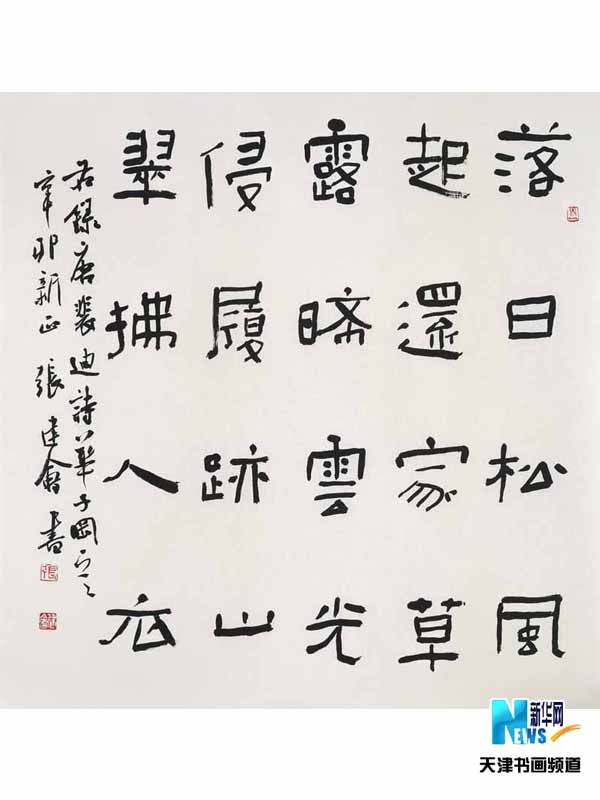 落日松風
起還家草
露晞雲光
侵履跡山
翠拂人衣
右錄唐裴迪詩華子岡
辛卯新正 張建會書
新华网
NEWS
天津书画频道